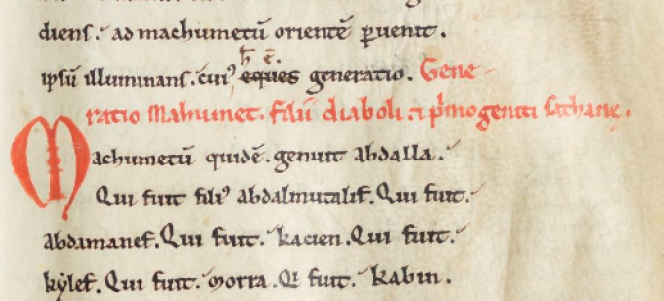 diens. ad machumetū orientē ꝑuenit.
ħ ē.
ipsū illuminans. cui⁹ eques generatio. Gene-
ratio Mahumet. filii diaboli et pͥmogeniti sathanę.
Machumetū quidē. genuit abdalla.
Qui fuit fili⁹ abdalmutalif. Qui fuit.
abdamanef. Qui fuit. kacien. Qui fuit.
kẏlef. Qui fuit. morra. Qi fuit. kabin.